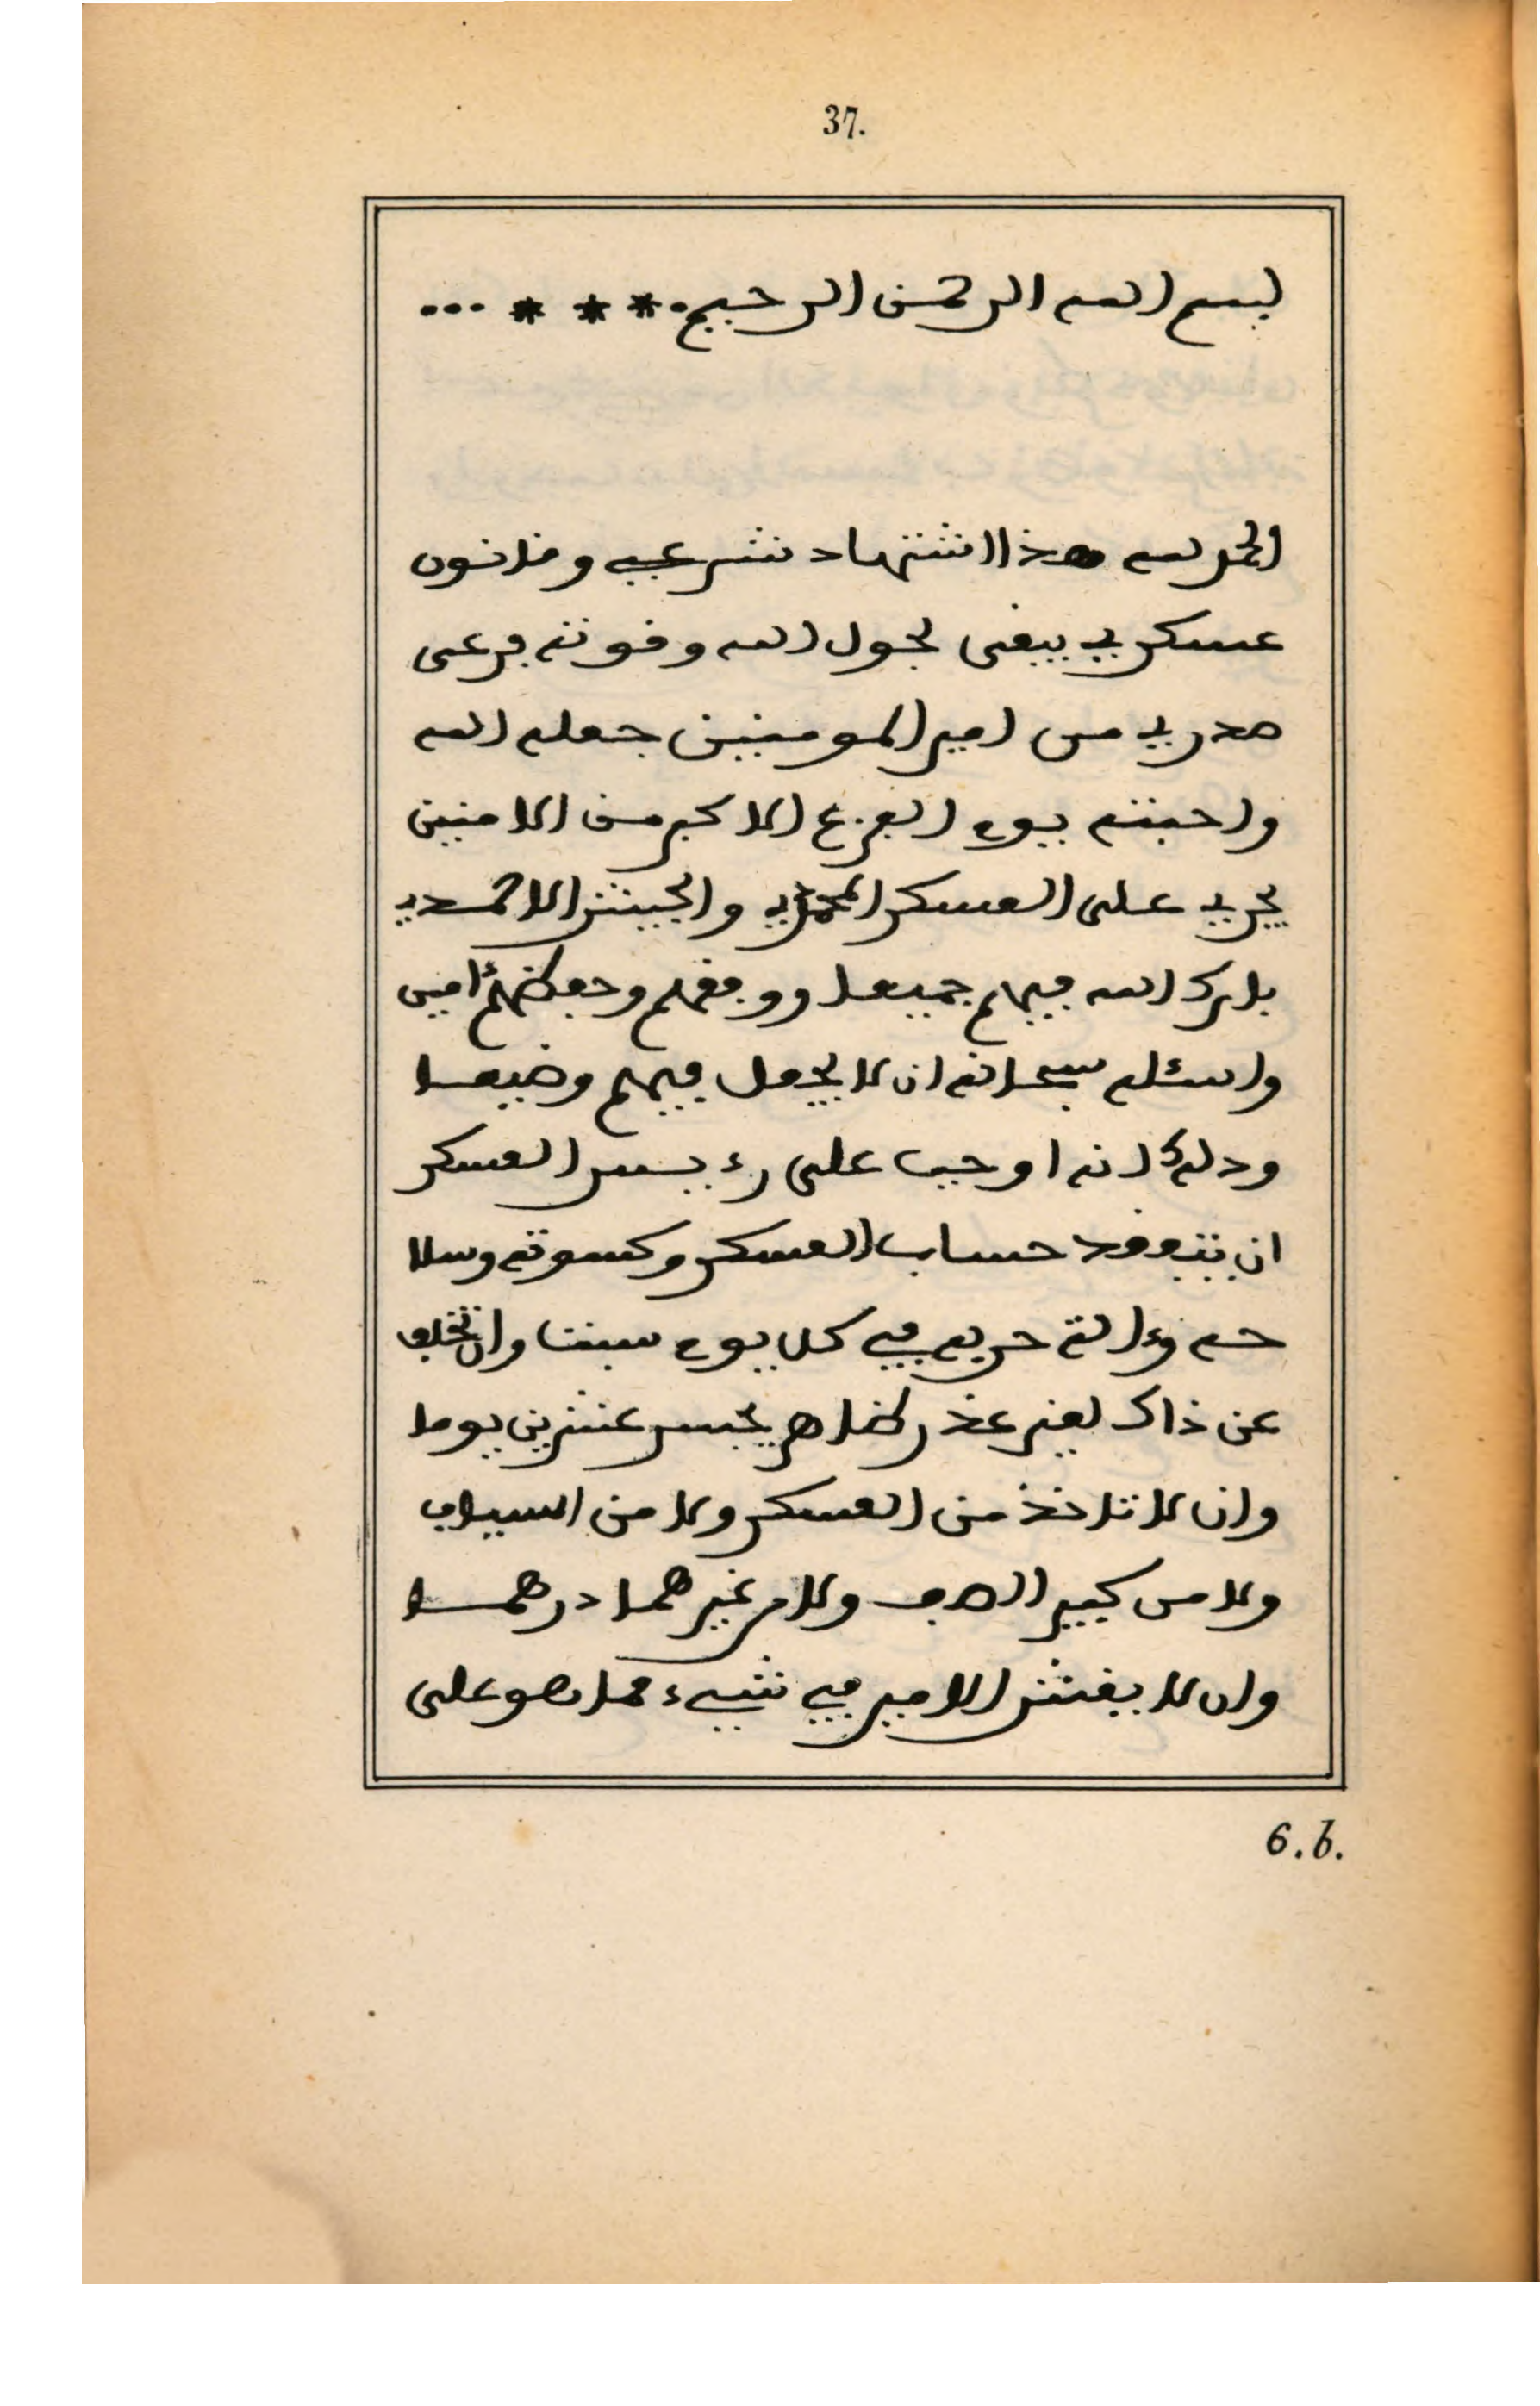 37.
بسم الله الرحمن الرحيم * * * ...
الحمد لله هذا اشتهاد شرعي وقانون
عسكري يبقى بحول الله وقوته فرعى
صدر يد من امير المومنين جعله الله
واحبته يوم الفزع الاكبر من الامنين
يجري على العسكر المحمدي والجيش الاحمدي
بارك الله فيهم جميعا ووفقهم وحفظهم ءامين
واسئله سبحانه ان لا يجعل فيهم وضيعا
وذلك انه اوجب على رءيس العسكر
ان يتفقد حساب العسكر وكسوته وسلا
حه وءالة حربه في كل يوم سبت وان تخلف
عن ذاك لغير عذر ظاهر يحبس عشرين يوما
وان لا تاخذ من العسكر ولا من السياف
ولا من كبير الصف ولا من غيرهما درهما
وان لا يغش الامير في شيء مما هو على
6.b.